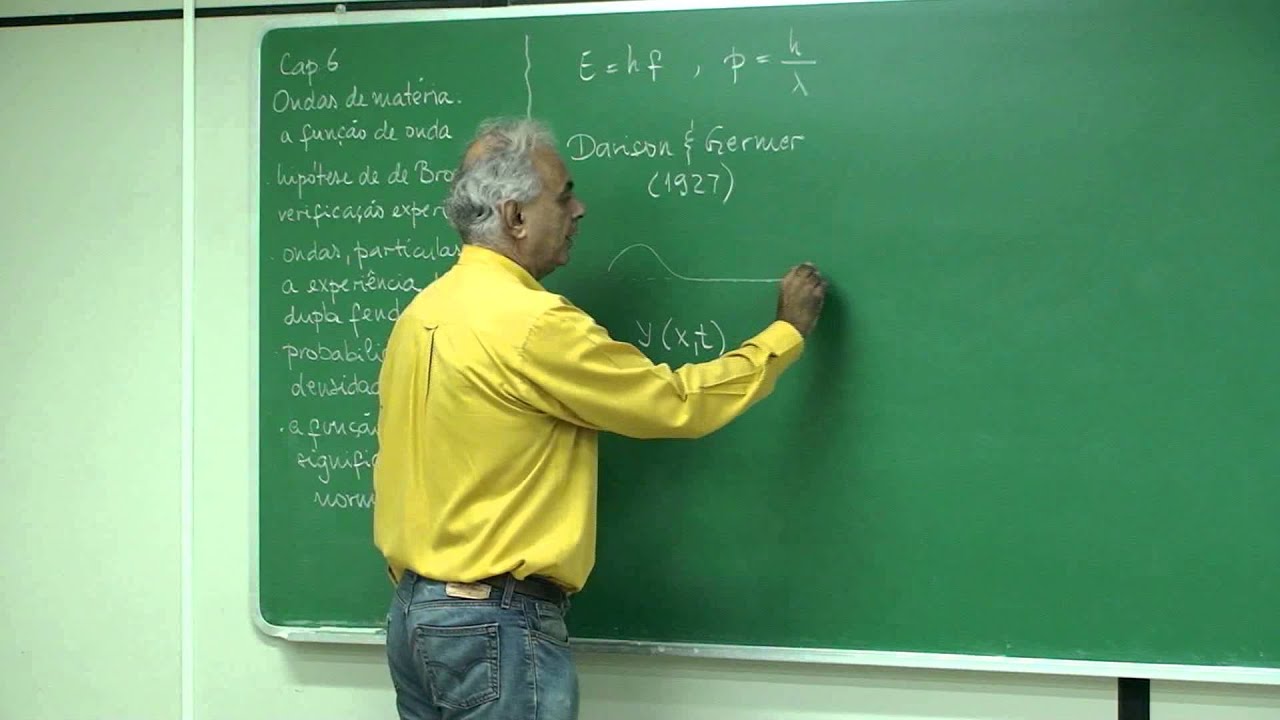 Cap 6
Ondas de matéria.
a função de onda
· hipótese de de Bro
verificação experi
· ondas, partículas
a experiência
dupla fend
· probabili
densidad
· a função
signific
norm
E = hf , p = h/λ
Davison & Germer
(1927)
y(x,t)